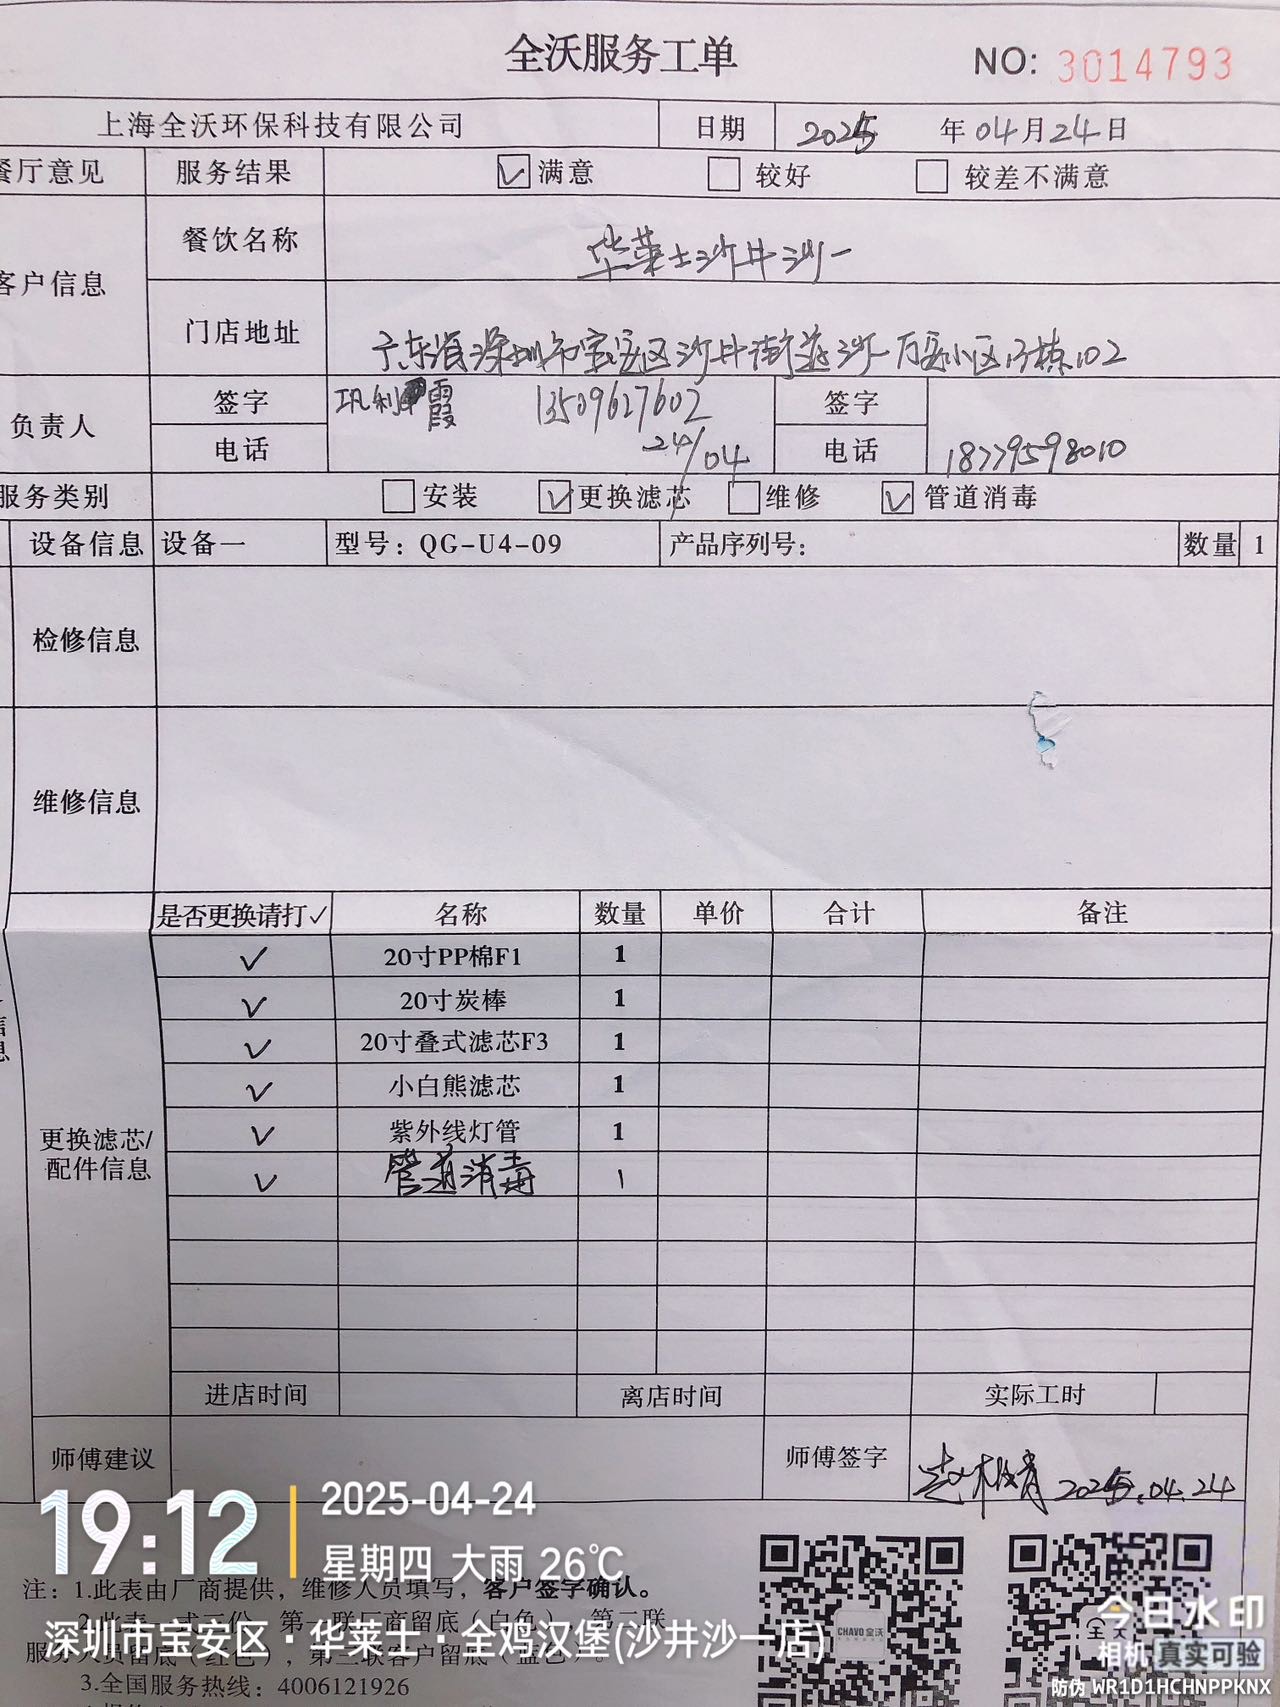 全沃服务工单
NO: 3014793
上海全沃环保科技有限公司 日期 2025 年 04 月 24 日
餐厅意见 服务结果 ☑ 满意 □ 较好 □ 较差不满意
客户信息 餐饮名称 华莱士沙井沙一
门店地址 广东省深圳市宝安区沙井街道沙一万安小区13栋102
负责人 签字 巩利霞 13509627602 签字
电话 24/04 电话 18779598010
服务类别 □ 安装 ☑ 更换滤芯 □ 维修 ☑ 管道消毒
设备信息 设备一 型号：QG-U4-09 产品序列号： 数量 1
检修信息
维修信息
是否更换请打✓ 名称 数量 单价 合计 备注
✓ 20寸PP棉F1 1
✓ 20寸炭棒 1
✓ 20寸叠式滤芯F3 1
✓ 小白熊滤芯 1
更换滤芯/配件信息 ✓ 紫外线灯管 1
✓ 管道消毒 1
信息
进店时间 离店时间 实际工时
师傅建议 师傅签字 2025.04.24
19:12 2025-04-24
星期四 大雨 26℃
注：1.此表由厂商提供，维修人员填写，客户签字确认。
2.此表一式三份，第一联厂商留底（白色），第二联
服务人员留底（红色），第三联客户留底（蓝色）。
深圳市宝安区·华莱士·全鸡汉堡(沙井沙一店)
3.全国服务热线：4006121926
CHAVO 全沃
今日水印
相机 真实可验
防伪 WR1D1HCHNPPKNX